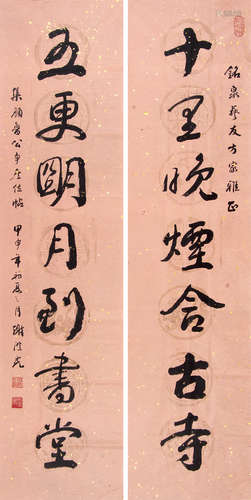 銘泉藝友方家雅正
十里晚煙含古寺
五更明月到書堂
集顏魯公爭座位帖
甲申年初夏之月